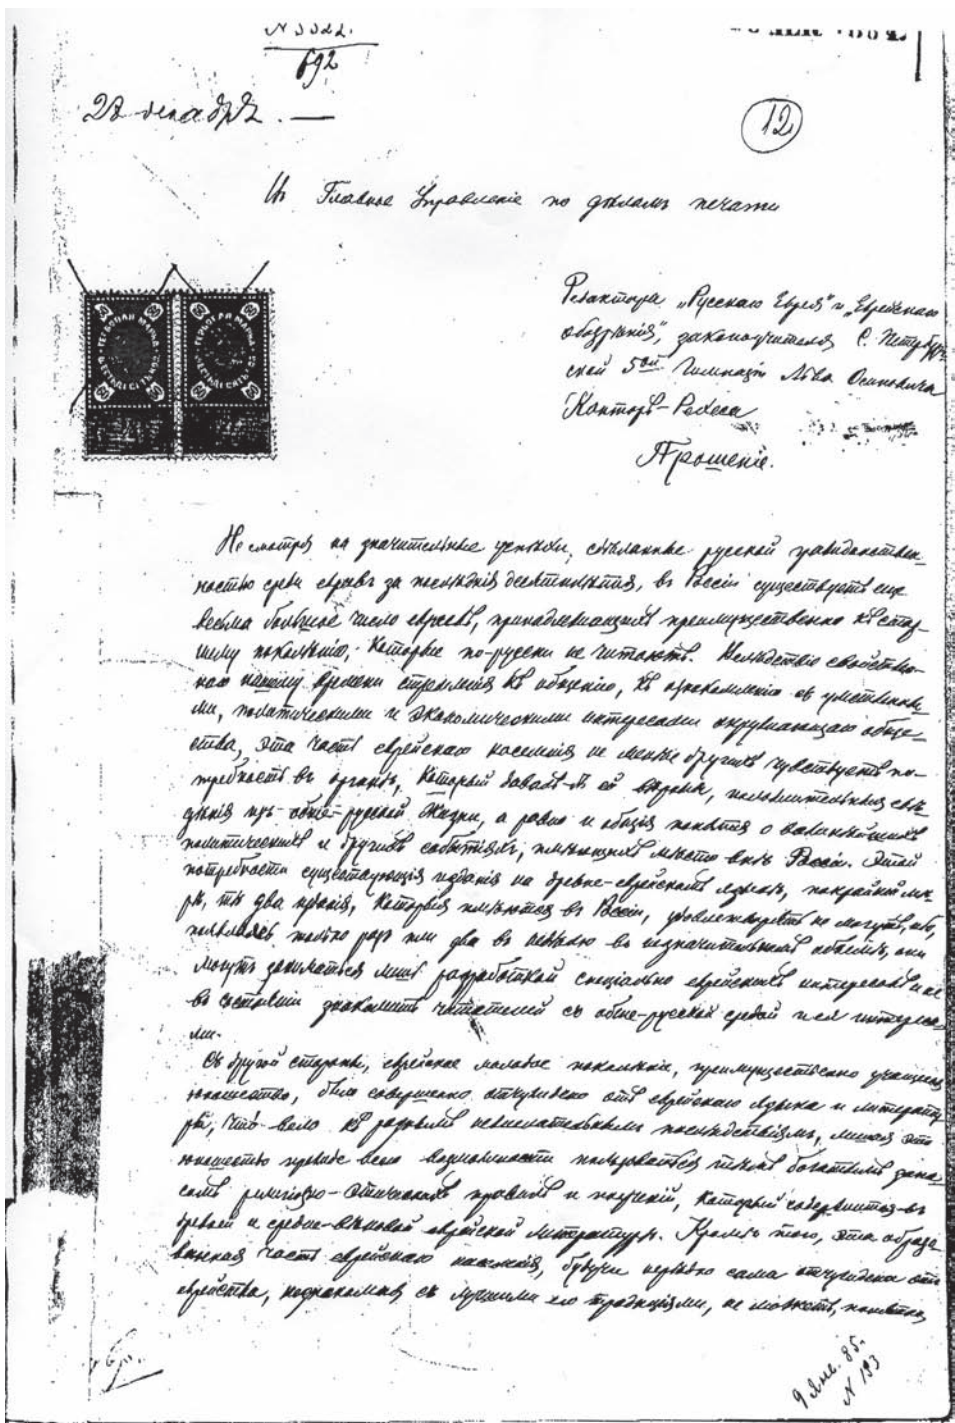 N 3322.
692
28 декабря. —
12
Въ Главное Управленіе по дѣламъ печати
ГЕРБОВАЯ МАРКА
60
Редактора „Русскаго Еврея" и „Еврейскаго
обозрѣнія", законоучителя С. Петербург-
ской 5ой Гимназіи Льва Осиповича
Канторъ-
Прошеніе.
Не смотря на значительные успѣхи, сдѣланные русской гражданствен-
ностью среди евреевъ за послѣднія десятилѣтія, въ Россіи существуетъ еще
весьма большое число евреевъ, принадлежащихъ преимущественно къ стар-
шему поколѣнію, которые по-русски не читаютъ. Вслѣдствіе свойствен-
наго нашему времени стремленія къ общенію, къ ознакомленію съ умственны-
ми, политическими и экономическими интересами окружающаго обще-
ства, эта часть еврейскаго населенія не менѣе другихъ чувствуетъ по-
требность въ органѣ, который давалъ-бъ ей вѣрныя, свѣ-
дѣнія изъ обще-русской жизни, а равно и общія понятія о важнѣйшихъ
политическихъ и другихъ событіяхъ, имѣющихъ мѣсто внѣ Россіи. Этой
потребности существующія изданія на древне-еврейскомъ языкѣ, покрайней мѣ-
рѣ, тѣ два изданія, которыя имѣются въ Россіи, удовлетворить не могутъ, ибо,
появляясь только разъ или два въ недѣлю въ незначительномъ объемѣ, они
могутъ заниматься лишь разработкой спеціально еврейскихъ интересовъ и не
въ состояніи знакомить читателей съ обще-русской средой и ея интереса-
ми.
Съ другой стороны, еврейское молодое поколѣніе, преимущественно учащееся
юношество, было совершенно отчуждено отъ еврейскаго языка и литерату-
ры, что вело къ разнымъ нежелательнымъ послѣдствіямъ, лишая это
юношество прежде всего возможности пользоваться тѣмъ богатымъ запа-
сомъ религіозно-этическихъ правилъ и поученій, который содержится въ
древней и средне-вѣковой еврейской литературѣ. Кромѣ того, эта образо-
ванная часть еврейскаго населенія, будучи нерѣдко сама отчуждена отъ
еврейства, съ лучшими его традиціями, не можетъ,
9 янв. 85.
N 193